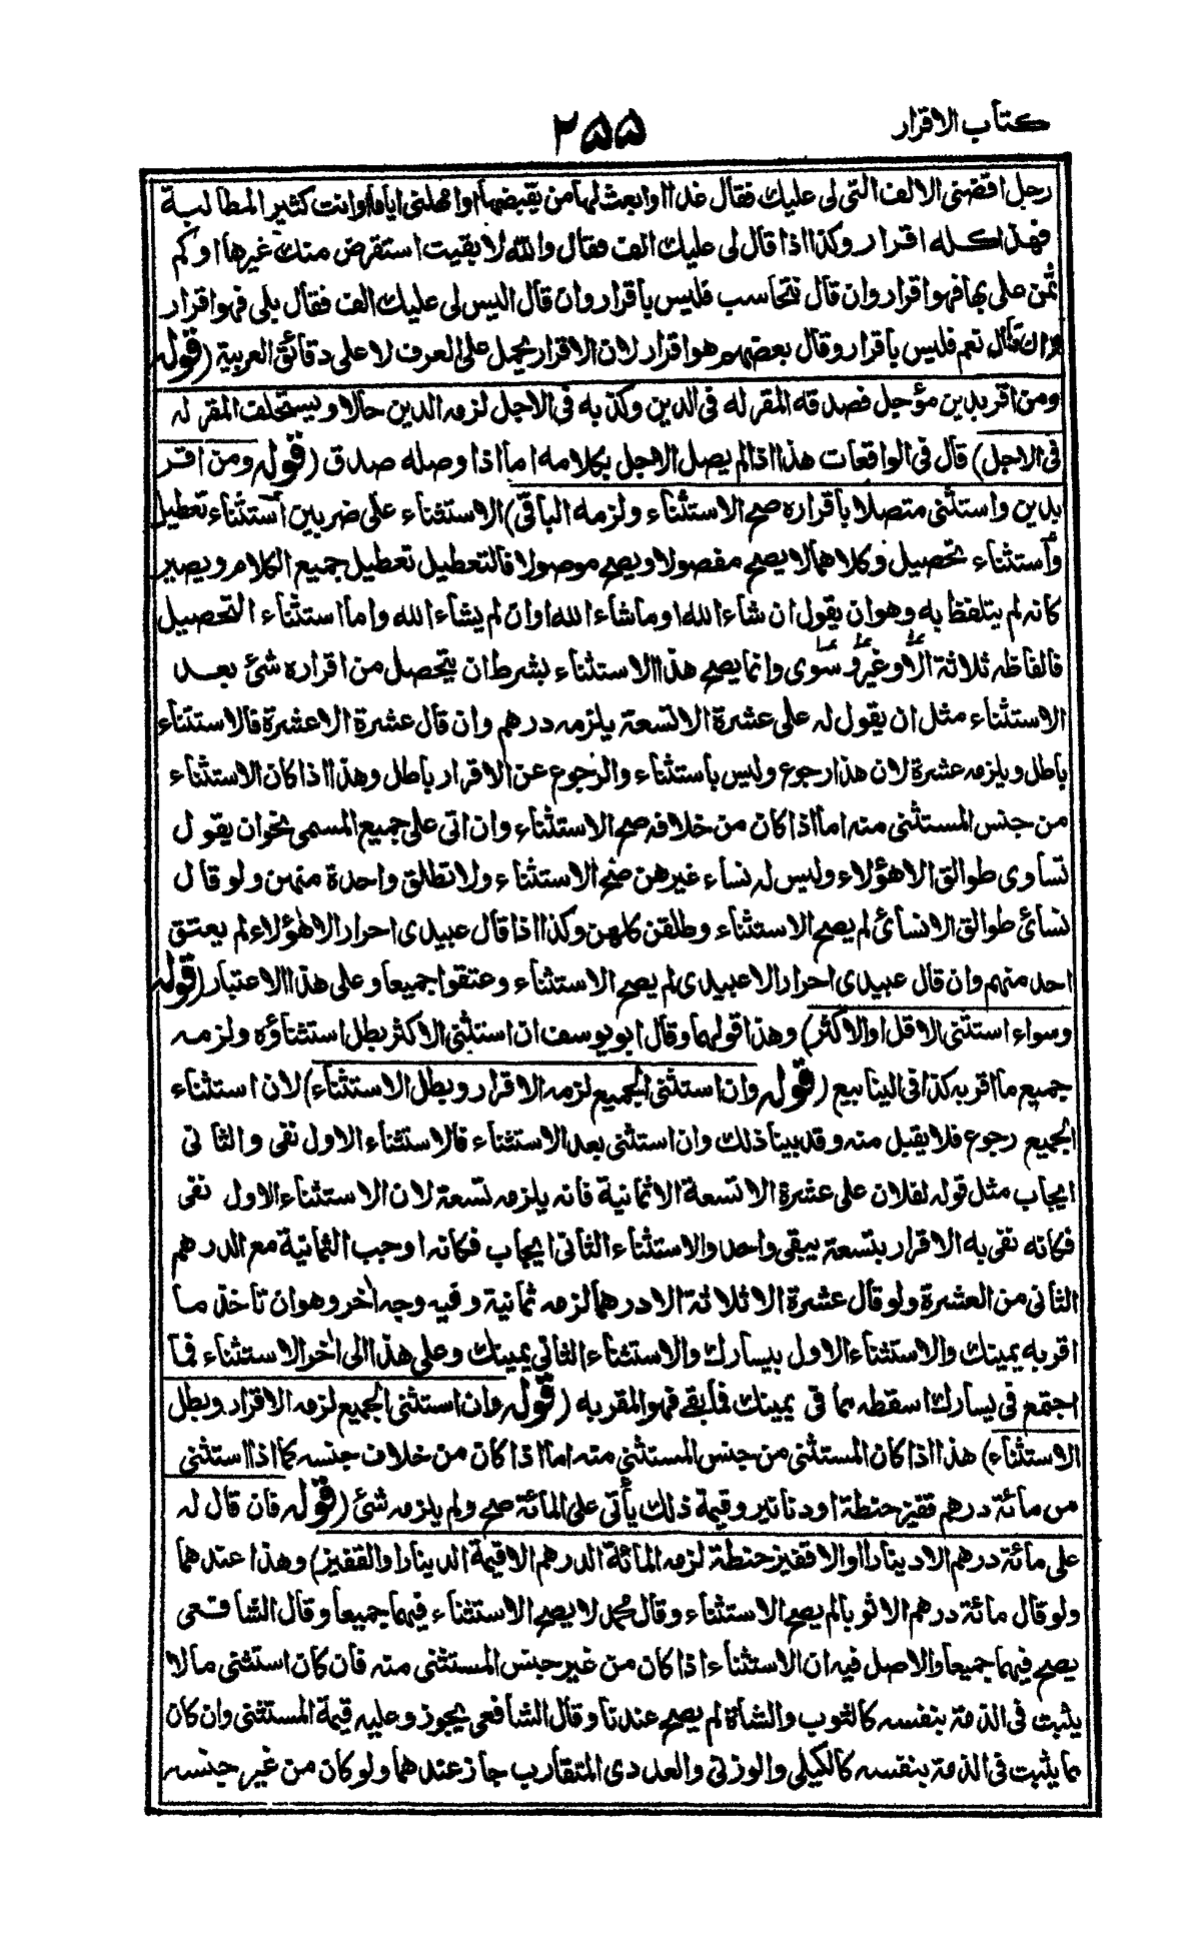 كتاب الاقرار
٢٥٥
رجل اقضنى الالف التى لى عليك فقال غدا او ابعث لها من يقبضها او امهلنى اياما وانت كثير المطالبة
فهذا كله اقرار وكذا اذا قال لى عليك الف فقال والله لا بقيت استقرض منك غيرها او كم
تمن على بها فهو اقرار وان قال نتحاسب فليس باقرار وان قال اليس لى عليك الف فقال بلى فهو اقرار
وان قال نعم فليس باقرار وقال بعضهم هو اقرار لان الاقرار يحمل على العرف لا على دقائق العربية (قوله
ومن اقر بدين مؤجل فصدقه المقر له فى الدين وكذبه فى الاجل لزمه الدين حالا ويستحلف المقر له
فى الاجل) قال فى الواقعات هذا اذا لم يصل الاجل بكلامه اما اذا وصله صدق (قوله ومن اقر
بدين واستثنى متصلا باقراره صح الاستثناء ولزمه الباقى) الاستثناء على ضربين استثناء تعطيل
واستثناء تحصيل وكلاهما لا يصح مفصولا ويصح موصولا فالتعطيل تعطيل جميع الكلام ويصير
كانه لم يتلفظ به وهو ان يقول ان شاء الله او ما شاء الله او ان لم يشاء الله واما استثناء التحصيل
فالفاظه ثلاثة الا وغير وسوى وانما يصح هذا الاستثناء بشرط ان يتحصل من اقراره شئ بعد
الاستثناء مثل ان يقول له على عشرة الا تسعة يلزمه درهم وان قال عشرة الا عشرة فالاستثناء
باطل ويلزمه عشرة لان هذا رجوع وليس باستثناء والرجوع عن الاقرار باطل وهذا اذا كان الاستثناء
من جنس المستثنى منه اما اذا كان من خلافه صح الاستثناء وان اتى على جميع المسمى نحو ان يقول
نساءى طوالق الا هؤلاء وليس له نساء غيرهن صح الاستثناء ولا تطلق واحدة منهن ولو قال
نسائ طوالق الا نسائ لم يصح الاستثناء وطلقن كلهن وكذا اذا قال عبيدى احرار الا هؤلاء لم يعتق
احد منهم وان قال عبيدى احرار الا عبيدى لم يصح الاستثناء وعتقوا جميعا وعلى هذا الاعتبار (قوله
وسواء استثنى الاقل او الاكثر) وهذا قولهما وقال ابو يوسف ان استثنى الاكثر بطل استثناؤه ولزمه
جميع ما اقر به كذا فى الينابيع (قوله وان استثنى الجميع لزمه الاقرار وبطل الاستثناء) لان استثناء
الجميع رجوع فلا يقبل منه وقد بينا ذلك وان استثنى بعد الاستثناء فالاستثناء الاول نفى والثانى
ايجاب مثل قوله لفلان على عشرة الا تسعة الا ثمانية فانه يلزمه تسعة لان الاستثناء الاول نفى
فكانه نفى به الاقرار بتسعة يبقى واحد والاستثناء الثانى ايجاب فكانه اوجب الثمانية مع الدرهم
الثانى من العشرة ولو قال عشرة الا ثلاثة الا درهما لزمه ثمانية وفيه وجه اخر وهو ان تأخذ ما
اقر به بيمينك والاستثناء الاول بيسارك والاستثناء الثانى بيمينك وعلى هذا الى اخر الاستثناء فما
اجتمع فى يسارك اسقطه مما فى يمينك فما بقى فهو المقر به (قوله وان استثنى الجميع لزمه الاقرار وبطل
الاستثناء) هذا اذا كان المستثنى من جنس المستثنى منه اما اذا كان من خلاف جنسه كما اذا استثنى
من مائة درهم قفيز حنطة او دنانير وقيمة ذلك يأتى على المائة صح ولم يلزمه شئ (قوله فان قال له
على مائة درهم الا دينارا او الا قفيز حنطة لزمه المائة الدرهم الا قيمة الدينار او القفيز) وهذا عندهما
ولو قال مائة درهم الا ثوبا لم يصح الاستثناء وقال محمد لا يصح الاستثناء فيهما جميعا وقال الشافعى
يصح فيهما جميعا والاصل فيه ان الاستثناء اذا كان من غير جنس المستثنى منه فان كان استثنى ما لا
يثبت فى الذمة بنفسه كالثوب والشاة لم يصح عندنا وقال الشافعى يجوز وعليه قيمة المستثنى وان كان
مما يثبت فى الذمة بنفسه كالكيلى والوزنى والعددى المتقارب جاز عندهما ولو كان من غير جنسه